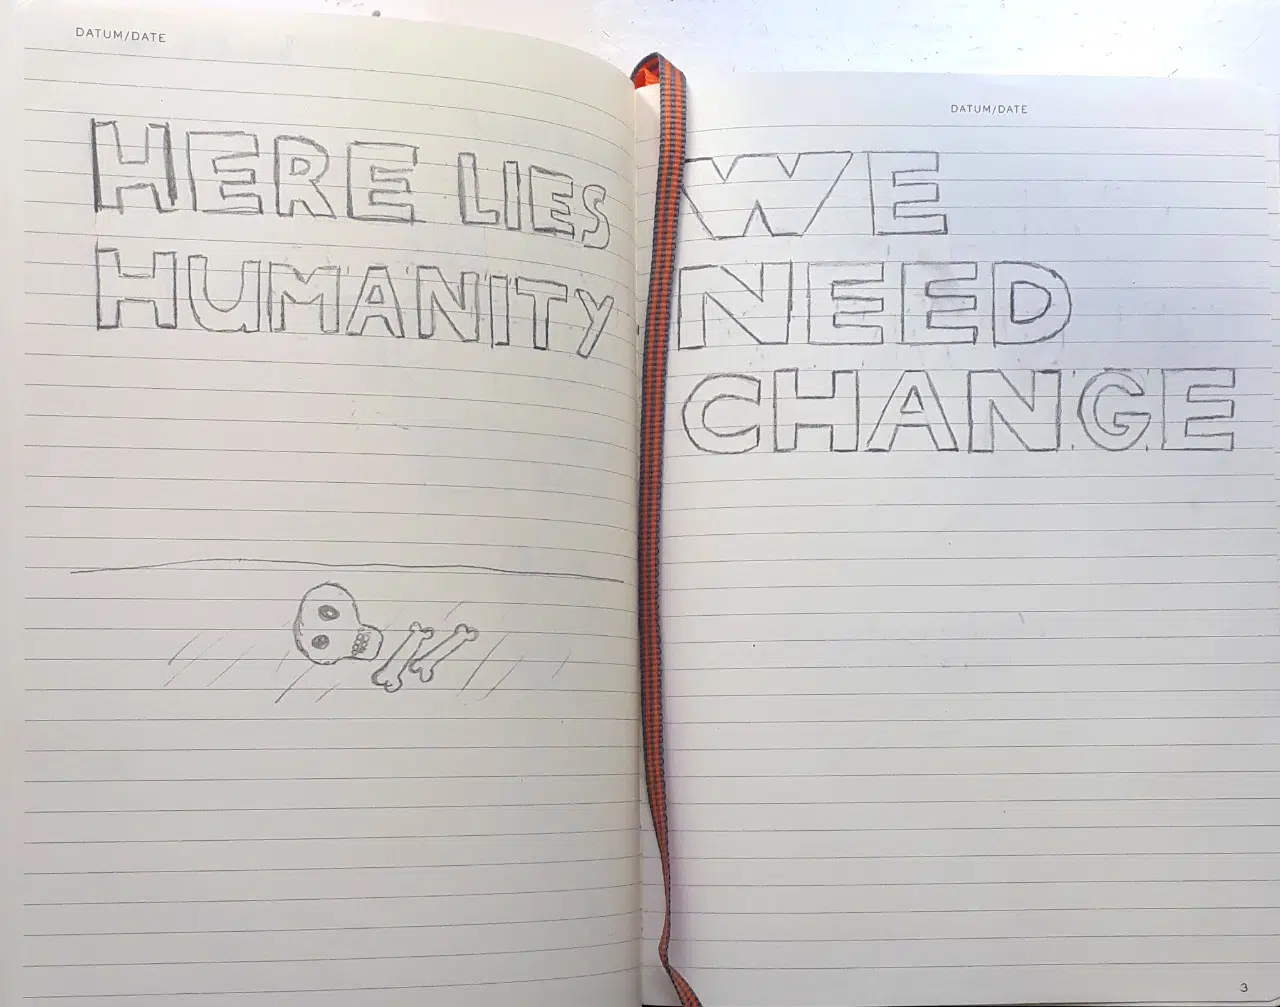 DATUM/DATE
HERE LIES
HUMANITY
DATUM/DATE
WE
NEED
CHANGE
3